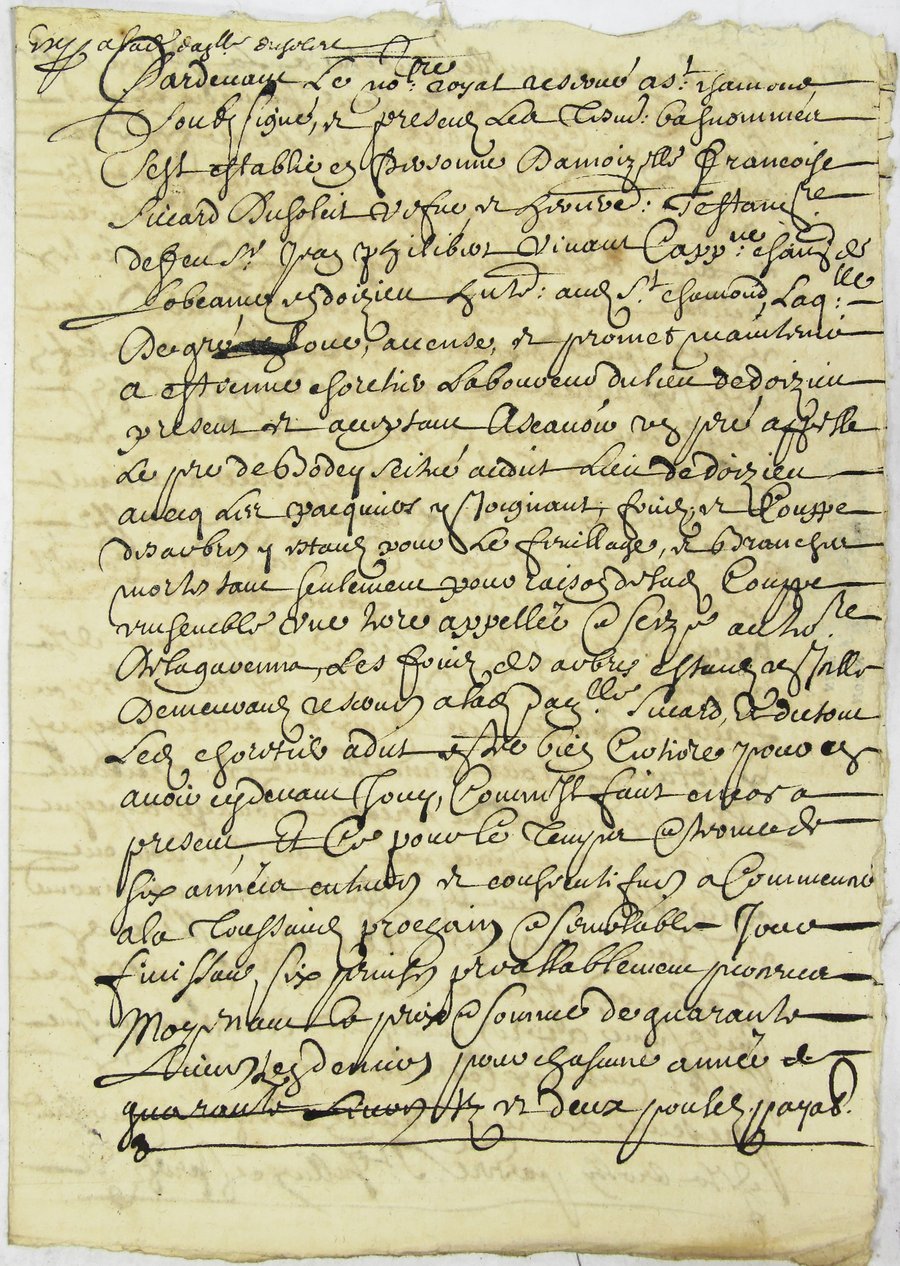 Exp. a lad. dam.lle dusoleit
Pardevant Le no.re royal reservé a S.t chamond
soubzsigné, et presens Les Tesm: basnommés
s'est establie en Personne Damoiz.elle Francoise
Sicard Dusoleit vefve et heretiere: Testam.re
de feu S.r Jean philibert vivant Capp.ne chastelain de
de doizieu habt: aud S.t chamond, Laq.lle
De gré loue, accense, et promet maintenir
a estienne choretier Laboureur du lieu de doizieu
present et acceptant Ascavoir un pré appellé
Le pré de Bodey scitué audit Lieu de doizieu
avecq Les pacquiers y Joignant, fruis, et Couppe
des arbres y estans pour Le feuillage, et Branches
mortes tant seulement pour raison de lad Couppe
ensemble une terre appellée et scize au terr.re
de lagavenna, Les fruis des arbres estans en Icelle
Demeurans reservés a lad dam.lle Sicard, Et du tout
Led choretier a dit estre bien Certioré pour en
avoir cydevant Jouy, Comm'Il faict encor a
present Et Ce pour Le Temps et terme de
six années entieres et consecutifves a Commencer
a la Toussainct prochain et semblable Jour
finissant, six prinses preallablement perceues
Moyenant Le prix et somme de quarante
Livres en deniers pour chascune année et
quarante Livres et deux poules payab.